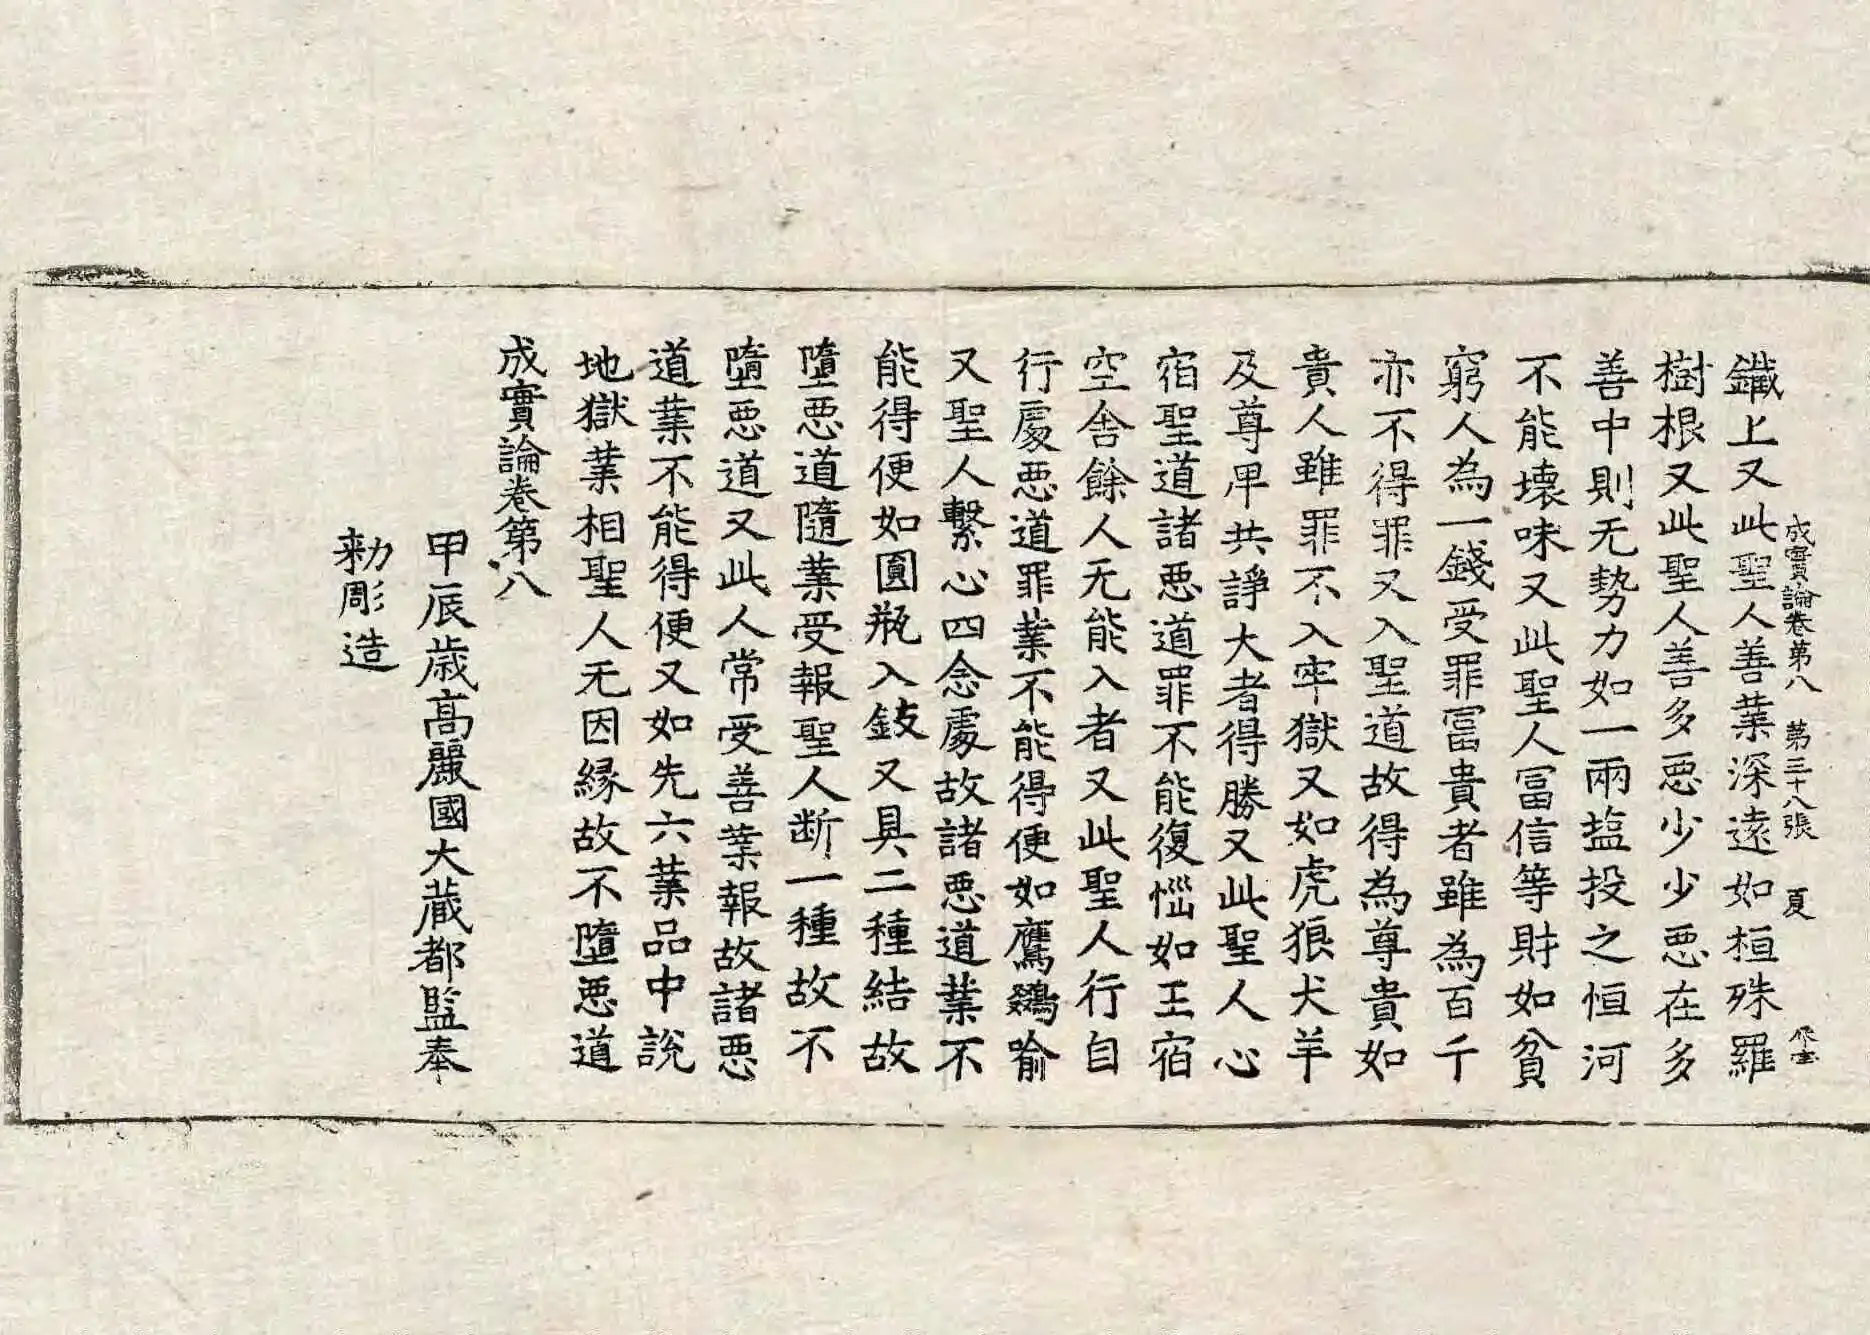 成實論卷第八 第三十八張 夏
鑯上又此聖人善業深遠如桓殊羅
樹根又此聖人善多惡少少惡在多
善中則无勢力如一兩塩投之恒河
不能壞味又此聖人冨信等財如貧
窮人為一錢受罪冨貴者雖為百千
亦不得罪又入聖道故得為尊貴如
貴人雖罪不入牢獄又如虎狼犬羊
及尊甲共諍大者得勝又此聖人心
宿聖道諸惡道罪不能復惱如王宿
空舍餘人无能入者又此聖人行自
行處惡道罪業不能得便如鷹鷄喻
又聖人繫心四念處故諸惡道業不
能得便如圓瓶入𢻃又具二種結故
墮惡道隨業受報聖人断一種故不
墮惡道又此人常受善業報故諸惡
道業不能得便又如先六業品中說
地獄業相聖人无因縁故不墮惡道
成實論卷第八
甲辰歲髙麗國大藏都監奉
勑彫造